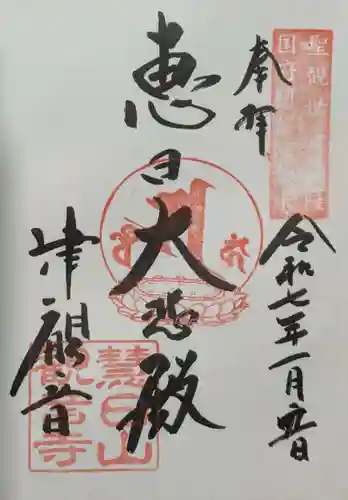 奉拝
令和七年一月吉日
恵日大悲殿
津観音
慧日山
観音寺